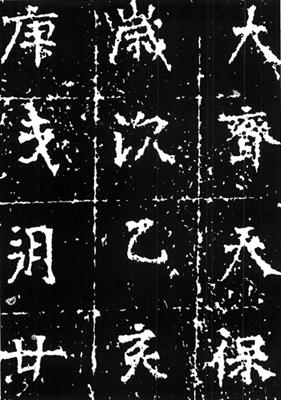 大齊天保
歲次乙亥
庚戌朔廿